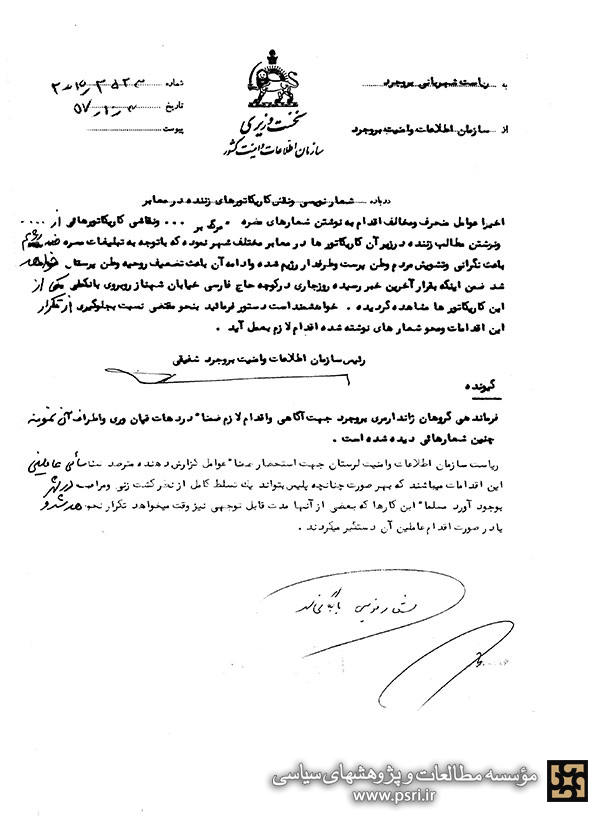 به ریاست شهربانی بروجرد
از سازمان اطلاعات وامنیت بروجرد
نخست وزیری
سازمان اطلاعات و امنیت کشور
شماره
تاریخ
پیوست
درباره شعار نویسی ونقاشی کاریکاتورهای زننده در معابر
اخیرا عوامل منحرف ومخالف اقدام به نوشتن شعارهای مضره مرگ بر ... ونقاشی کاریکاتورهائی از ....
ونوشتن مطالب زننده در زیر آن کاریکاتور ها در معابر مختلف شهر نموده که باتوجه به تبلیغات مضره ضد رژیم
باعث نگرانی وتشویش مردم وطن پرست وطرفدار رژیم شده وادامه آن باعث تضعیف روحیه وطن پرستان خواهد
شد ضمن اینکه بقرار آخرین خبر رسیده روزجاری در کوچه حاج فارسی خیابان شهناز روبروی بانک ملی یکی از
این کاریکاتور ها مشاهده گردیده . خواهشمند است دستور فرمائید بنحو مقتضی نسبت بجلوگیری از تکرار
این اقدامات ومحو شعار های نوشته شده اقدام لازم بعمل آید .
رئیس سازمان اطلاعات وامنیت بروجرد شفیقی
گیرنده
فرماندهی گروهان ژاندارمری بروجرد جهت آگاهی واقدام لازم ضمنا" در دهات قیان وری واطراف آن
چنین شعارهائی دیده شده است .
ریاست سازمان اطلاعات وامنیت لرستان جهت استحضار ضمنا" عوامل گزارش دهنده مترصد شناسائی عاملین
این اقدامات میباشند که بهر صورت چنانچه پلیس بتواند یک تسلط کامل از نظر گشت زنی ومراقبت در شهر
بوجود آورد مسلما" این کارها که بعضی از آنها مدت قابل توجهی نیز وقت میخواهد تکرار نخواهد شد و
یا در صورت اقدام عاملین آن دستگیر میگردند .
مؤسسه مطالعات و پژوهشهای سیاسی
www.psri.ir